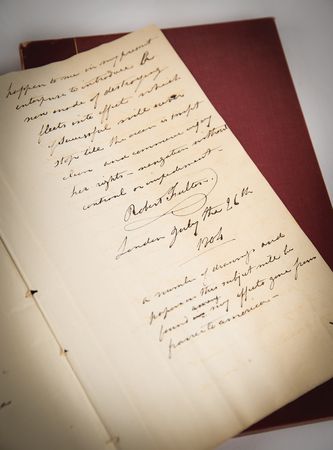 happen to me in my present
enterprise to introduce A
new mode of destroying
fleets into effects which
if successful will never
stop till the ocean is swept
clean and commerce enjoy
her rights – navigation without
control or impediment –
Robert Fulton
London July the 26th
1804
a number of drawings and
papers on this subject will be
found among my effects gone from
france to america –